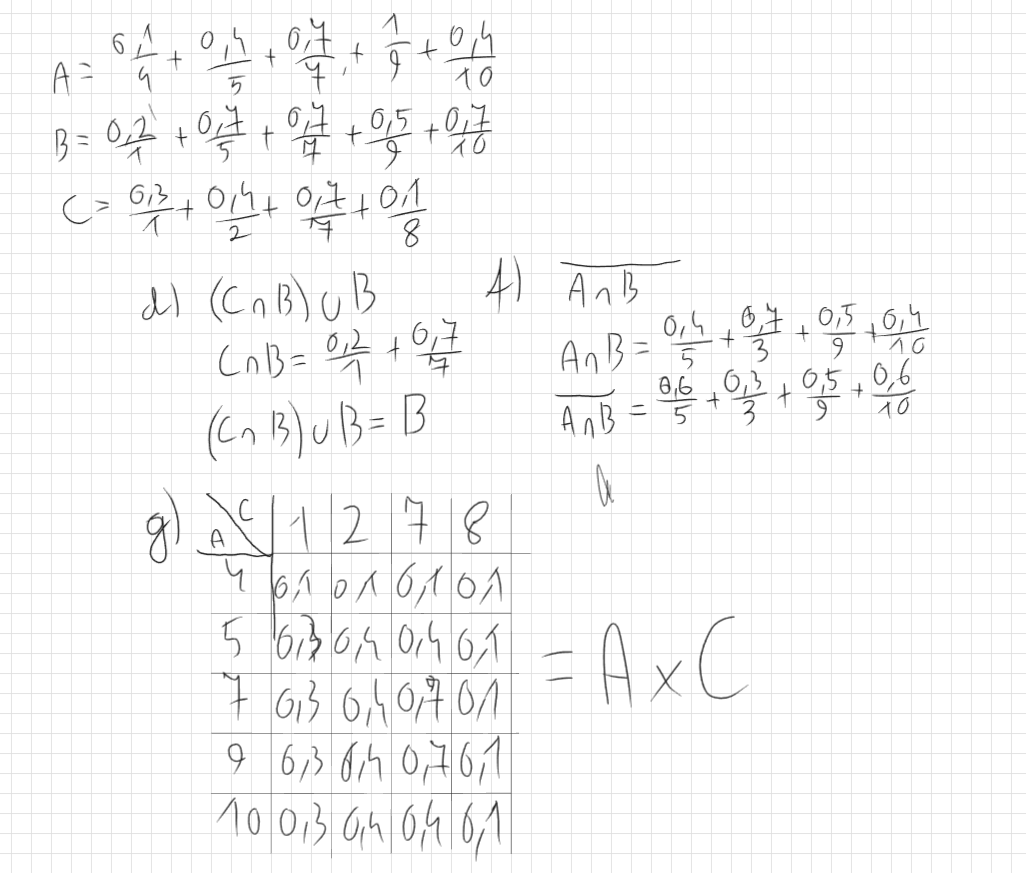 A = 0,1/4 + 0,4/5 + 0,7/7 + 1/9 + 0,4/10
B = 0,2/1 + 0,7/5 + 0,7/7 + 0,5/9 + 0,7/10
C = 0,3/1 + 0,4/2 + 0,7/7 + 0,1/8
d) (C∩B)∪B
C∩B = 0,2/1 + 0,7/7
(C∩B)∪B = B
f) \overline{A∩B}
A∩B = 0,4/5 + 0,7/3 + 0,5/9 + 0,4/10
\overline{A∩B} = 0,6/5 + 0,3/3 + 0,5/9 + 0,6/10
g) A\C 1 2 7 8
4 0,1 0,1 0,1 0,1
5 0,3 0,4 0,4 0,1
7 0,3 0,4 0,7 0,1
9 0,3 0,4 0,7 0,1
10 0,3 0,4 0,4 0,1
= A×C